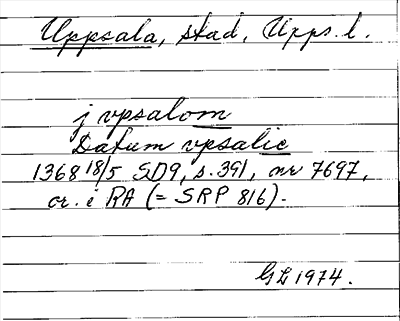 Uppsala, stad, Upps. l.
j vpsalom
Datum vpsalie
1368 18/5 SD9, s. 391, nr 7697,
or. i RA (= SRP 816).
GL 1974.